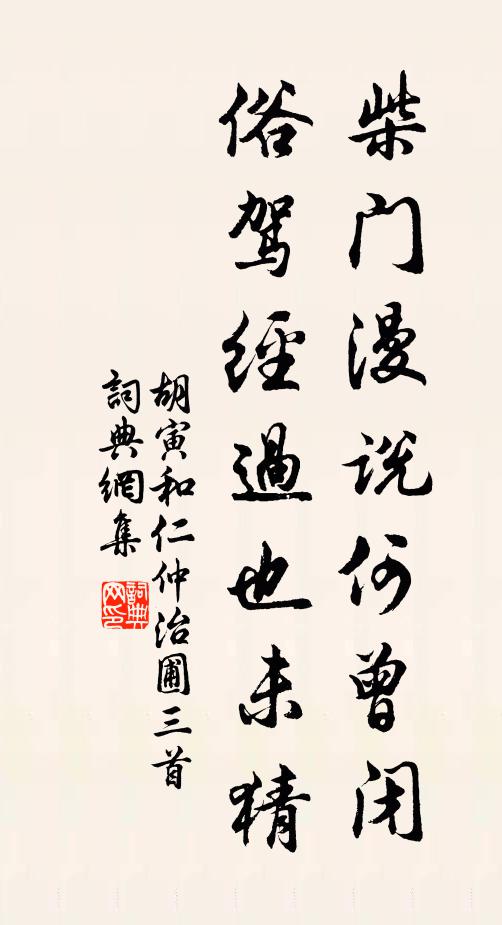 柴门漫说何曾闭
俗驾經過也未猜
胡寅和仁仲治圃三首
詞典網集
詞典网印